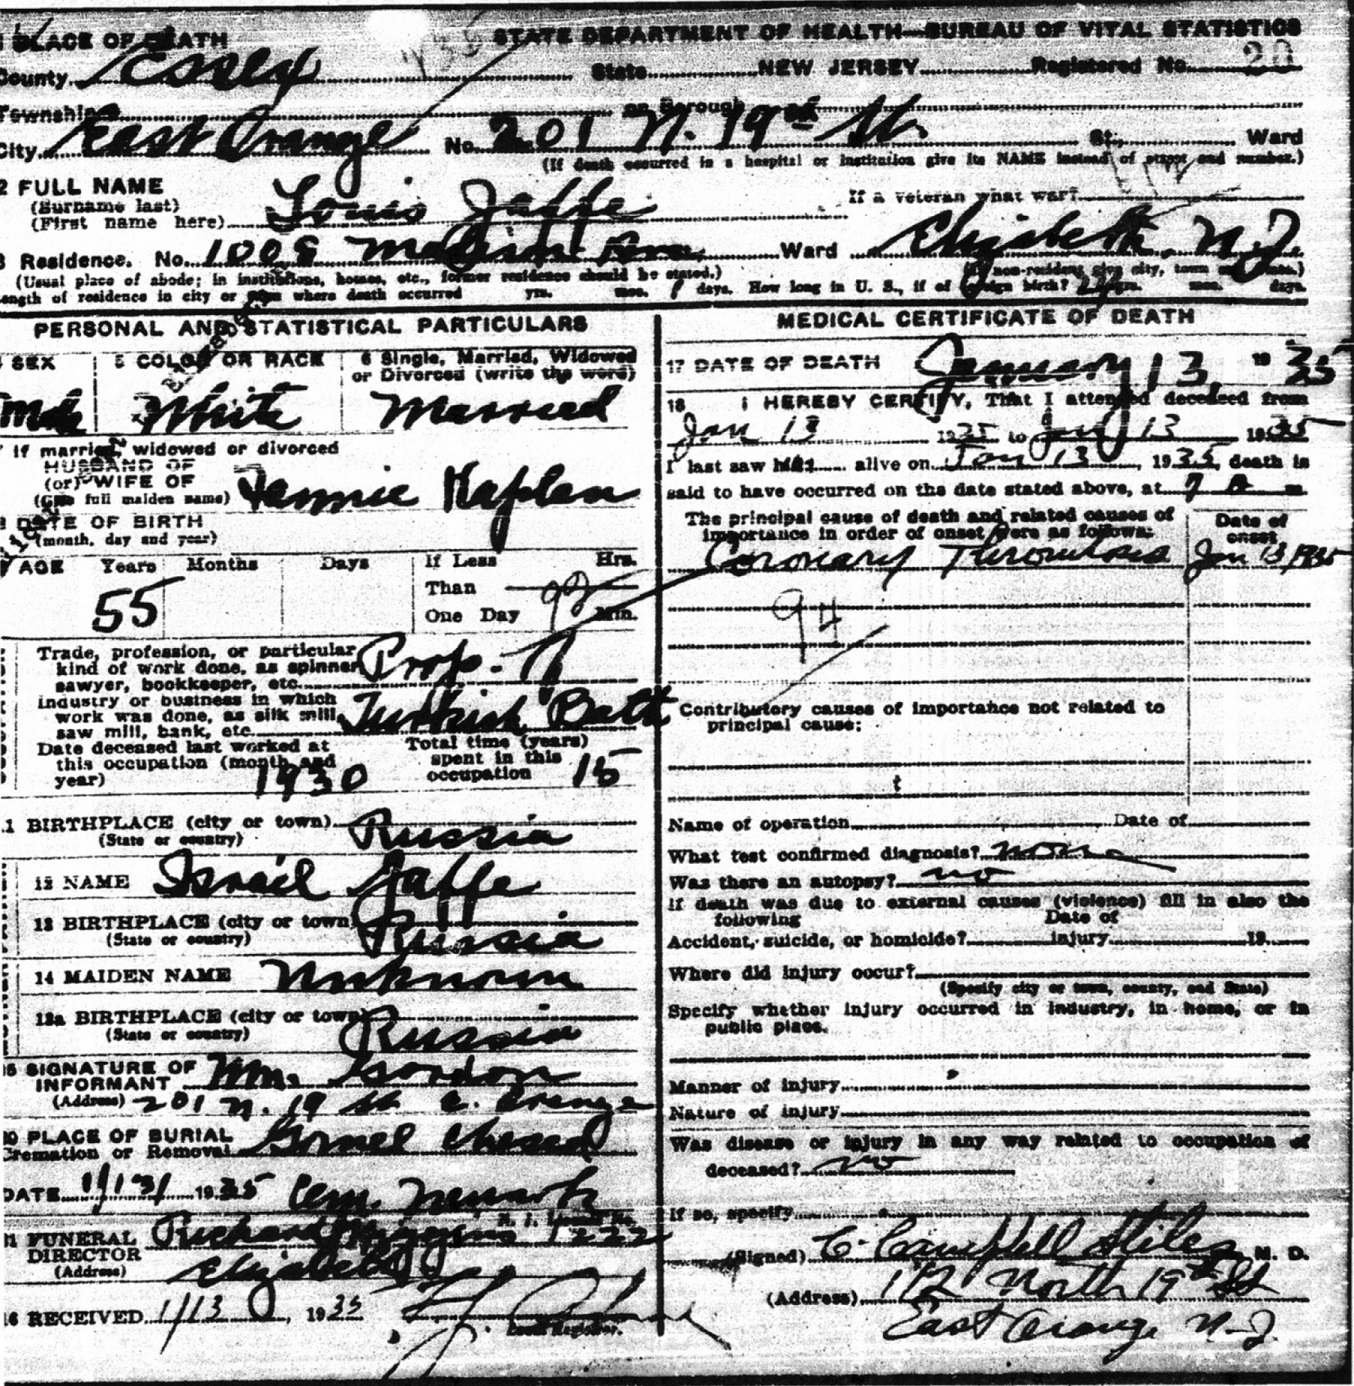 PLACE OF DEATH
STATE DEPARTMENT OF HEALTH—BUREAU OF VITAL STATISTICS
County Essex State NEW JERSEY Registered No. 20
Township or Borough
City East Orange No. 201 N. 19th St. St., Ward
(If death occurred in a hospital or institution give its NAME instead of street and number.)
2 FULL NAME
(Surname last)
(First name here) Louis Jaffe
If a veteran what war?
Residence. No. 1008 Ward Elizabeth N.J.
(Usual place of abode; in institutions, homes, etc., former residence should be stated.) (If non-resident give city, town and state.)
Length of residence in city or town where death occurred yrs. mos. days. How long in U. S., if of foreign birth? yrs. mos. days.
PERSONAL AND STATISTICAL PARTICULARS
SEX
5 COLOR OR RACE
6 Single, Married, Widowed
or Divorced (write the word)
Male White Married
If married, widowed or divorced
HUSBAND OF
(or) WIFE OF
(Give full maiden name) Fannie Kaplan
DATE OF BIRTH
(month, day and year)
AGE Years Months Days If Less Hrs.
Than
One Day Min.
55
Trade, profession, or particular
kind of work done, as spinner
sawyer, bookkeeper, etc. Prop. of
Industry or business in which
work was done, as silk mill,
saw mill, bank, etc. Turkish Bath
Date deceased last worked at
this occupation (month and
year) 1930
Total time (years)
spent in this
occupation 15
11 BIRTHPLACE (city or town)
(State or country) Russia
12 NAME Israil Jaffe
13 BIRTHPLACE (city or town)
(State or country) Russia
14 MAIDEN NAME Unknown
13a BIRTHPLACE (city or town)
(State or country) Russia
15 SIGNATURE OF
INFORMANT Wm. Gordon
(Address) 201 N. 19 St E. Orange
PLACE OF BURIAL
Cremation or Removal Gomel Chesed
DATE 1/13/ 1935 Cem. Newark
FUNERAL
DIRECTOR Richard Higgins 1222
(Address) Elizabeth
16 RECEIVED 1/13, 1935
Local Registrar.
MEDICAL CERTIFICATE OF DEATH
17 DATE OF DEATH January 13, 1935
18 I HEREBY CERTIFY, That I attended deceased from
Jan 13 1935 to Jan 13 1935
I last saw him alive on Jan 13, 1935, death is
said to have occurred on the date stated above, at 7 A m
The principal cause of death and related causes of
importance in order of onset were as follows:
Date of
onset
Coronary Thrombosis Jan 13, 1935
94
Contributory causes of importance not related to
principal cause:
Name of operation Date of
What test confirmed diagnosis? none
Was there an autopsy? no
If death was due to external causes (violence) fill in also the
following
Accident, suicide, or homicide? Date of injury 19
Where did injury occur?
(Specify city or town, county, and State)
Specify whether injury occurred in industry, in home, or in
public place.
Manner of injury
Nature of injury
Was disease or injury in any way related to occupation of
deceased? no
If so, specify
(Signed) C. Campbell Stiles M. D.
(Address) 112 North 19th St
East Orange N.J.